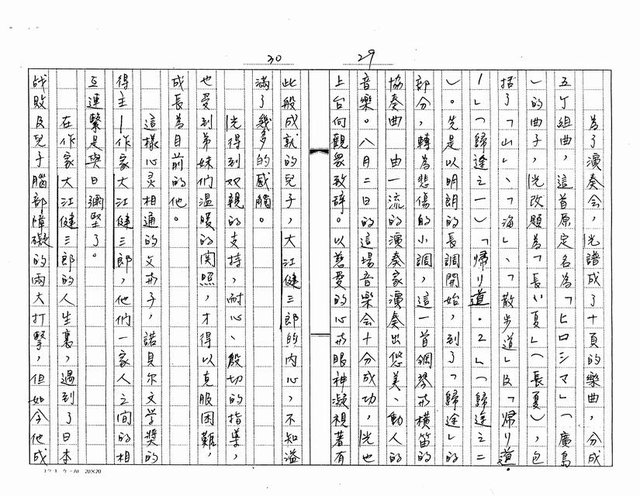 29
為了演奏會，光譜成了十頁的樂曲，分成
五丁組曲，這首原定名為「ヒロシマ」（廣島
）的曲子，光改題為「長い夏」（長夏），包
括了「山」、「海」、「散步道」及「帰り道
1」（歸途之一）「帰り道。2」（歸途之二
）。先是以明朗的長調開始，到了「歸途」的
部分，轉為悲傷的小調，這一首鋼琴和橫笛的
協奏曲由一流的演奏家演奏出悠美、動人的
音樂。八月二日的這場音樂会十分成功，光也
上台向觀眾致辞。以慈愛的心和眼神凝視著有
30
此般成就的兒子，大江健三郎的內心，不知溢
滿了幾多的感觸。
光得到父親的支持，耐心、殷切的指導，
也受到弟妹們溫暖的関照，才得以克服困難，
成長為目前的他。
這樣心灵相通的父和子，諾貝尔文学獎的
得主—作家大江健三郎，他們一家人之間的相
互連繫是與日彌堅了。
在作家大江健三郎的人生裏，遇到了日本
战敗及兒子腦部障礙的兩大打擊，但如今他成
20X20